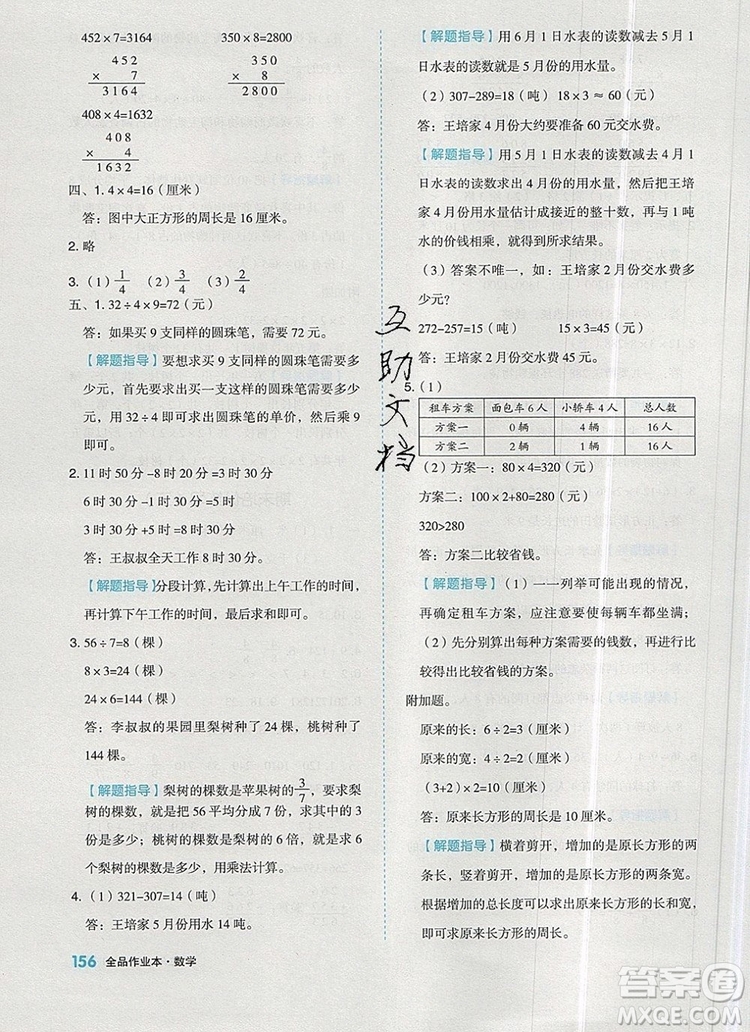 452×7=3164 350×8=2800
4 5 2
× 7
3 1 6 4
3 5 0
× 8
2 8 0 0
408×4=1632
4 0 8
× 4
1 6 3 2
四、1. 4×4=16（厘米）
答：图中大正方形的周长是 16 厘米。
2. 略
3.（1）1/4 （2）3/4 （3）2/4
五、1. 32÷4×9=72（元）
答：如果买 9 支同样的圆珠笔，需要 72 元。
【解题指导】要想求买 9 支同样的圆珠笔需要多
少元，首先要求出买一支同样的圆珠笔需要多少
元，用 32÷4 即可求出圆珠笔的单价，然后乘 9
即可。
2. 11 时 50 分 -8 时 20 分 =3 时 30 分
6 时 30 分 -1 时 30 分 =5 时
3 时 30 分 +5 时 =8 时 30 分
答：王叔叔全天工作了 8 时 30 分。
【解题指导】分段计算，先计算出上午工作的时间，
再计算下午工作的时间，最后求和即可。
3. 56÷7=8（棵）
8×3=24（棵）
24×6=144（棵）
答：李叔叔的果园里梨树种了 24 棵，桃树种了
144 棵。
【解题指导】梨树的棵数是苹果树的 3/7，要求梨
树的棵数，就是把 56 平均分成 7 份，求其中的 3
份是多少；桃树的棵数是梨树的 6 倍，就是求 6
个梨树的棵数是多少，用乘法计算。
4.（1）321-307=14（吨）
答：王培家 5 月份用水 14 吨。
156 全品作业本·数学
【解题指导】用 6 月 1 日水表的读数减去 5 月 1
日水表的读数就是 5 月份的用水量。
（2）307-289=18（吨） 18×3≈60（元）
答：王培家 4 月份大约要准备 60 元交水费。
【解题指导】用 5 月 1 日水表的读数减去 4 月 1
日水表的读数求出 4 月份的用水量，然后把王培
家 4 月份用水量估计成接近的整十数，再与 1 吨
水的价钱相乘，就得到所求结果。
（3）答案不唯一，如：王培家 2 月份交水费多
少元?
272-257=15（吨） 15×3=45（元）
答：王培家 2 月份交水费 45 元。
5.（1）
租车方案 面包车 6 人 小轿车 4 人 总人数
方案一 0 辆 4 辆 16 人
方案二 2 辆 1 辆 16 人
（2）方案一：80×4=320（元）
方案二：100×2+80=280（元）
320>280
答：方案二比较省钱。
【解题指导】（1）一一列举可能出现的情况，
再确定租车方案，尽量使每辆车都坐满。
（2）先分别算出每种方案需要的钱数，再比较
得出比较省钱的方案。
附加题。
原来的长：6÷2=3（厘米）
原来的宽：4÷2=2（厘米）
（3+2）×2=10（厘米）
答：原来长方形的周长是10厘米。
【解题指导】横着剪开，增加的是原长方形的两
条长，竖着剪开，增加的是原长方形的两条宽。
根据增加的长度可以先求出原来长方形的长和
宽，再求原来长方形的周长。
互
助
文
档
答案圈
MXQE.COM